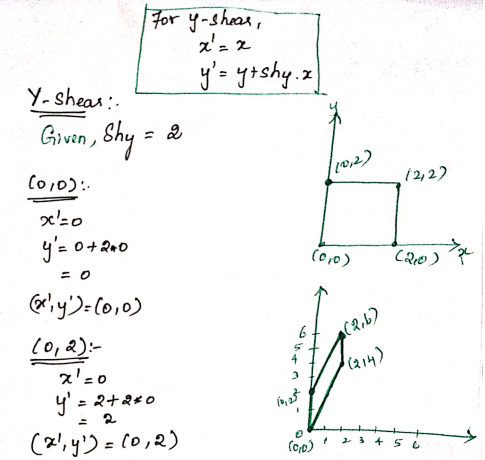 For y-shear,
x' = x
y' = y+shy.x
Y-Shear:.
Given, Shy = 2
(0,0):.
x'=0
y'= 0+2*0
= 0
(x',y')=(0,0)
(0,2):-
x'=0
y' = 2+2*0
= 2
(x',y') = (0,2)
y
(0,2)
(2,2)
(0,0)
(2,0)
x
6
5
4
3
2
1
0
(2,6)
(2,4)
(0,2)
(0,0)
1 2 3 4 5 6